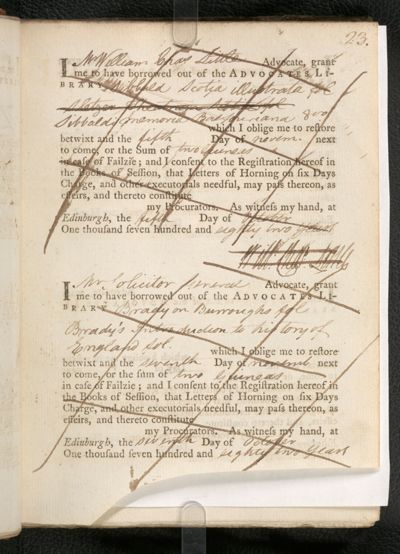 23.
I Mr William Chas Little Advocate, grant
me to have borrowed out of the ADVOCATES LI-
BRARY Sibbald Scotia illustrata fol
Sibbald memoria Balfouriana 8vo
which I oblige me to reſtore
betwixt and the fifth Day of novem. next
to come, or the Sum of two guineas
in caſe of Failzie; and I conſent to the Regiſtration hereof in
the Books of Seſſion, that Letters of Horning on ſix Days
Charge, and other executorials needful, may paſs thereon, as
effeirs, and thereto conſtitute
my Procurators. As witneſs my hand, at
Edinburgh, the fifth Day of October
One thouſand ſeven hundred and eighty two Years
Will. Chas. Little
I Mr Solicitor General Advocate, grant
me to have borrowed out of the ADVOCATES LI-
BRARY Brady on Burroughs fol
Brady's Introduction to history of
England fol.
which I oblige me to reſtore
betwixt and the seventh Day of novemr next
to come, or the ſum of two guineas
in caſe of Failzie; and I conſent to the Regiſtration hereof in
the Books of Seſſion, that Letters of Horning on ſix Days
Charge, and other executorials needful, may paſs thereon, as
effeirs, and thereto conſtitute
my Procurators. As witneſs my hand, at
Edinburgh, the seventh Day of October
One thouſand ſeven hundred and eighty two Years